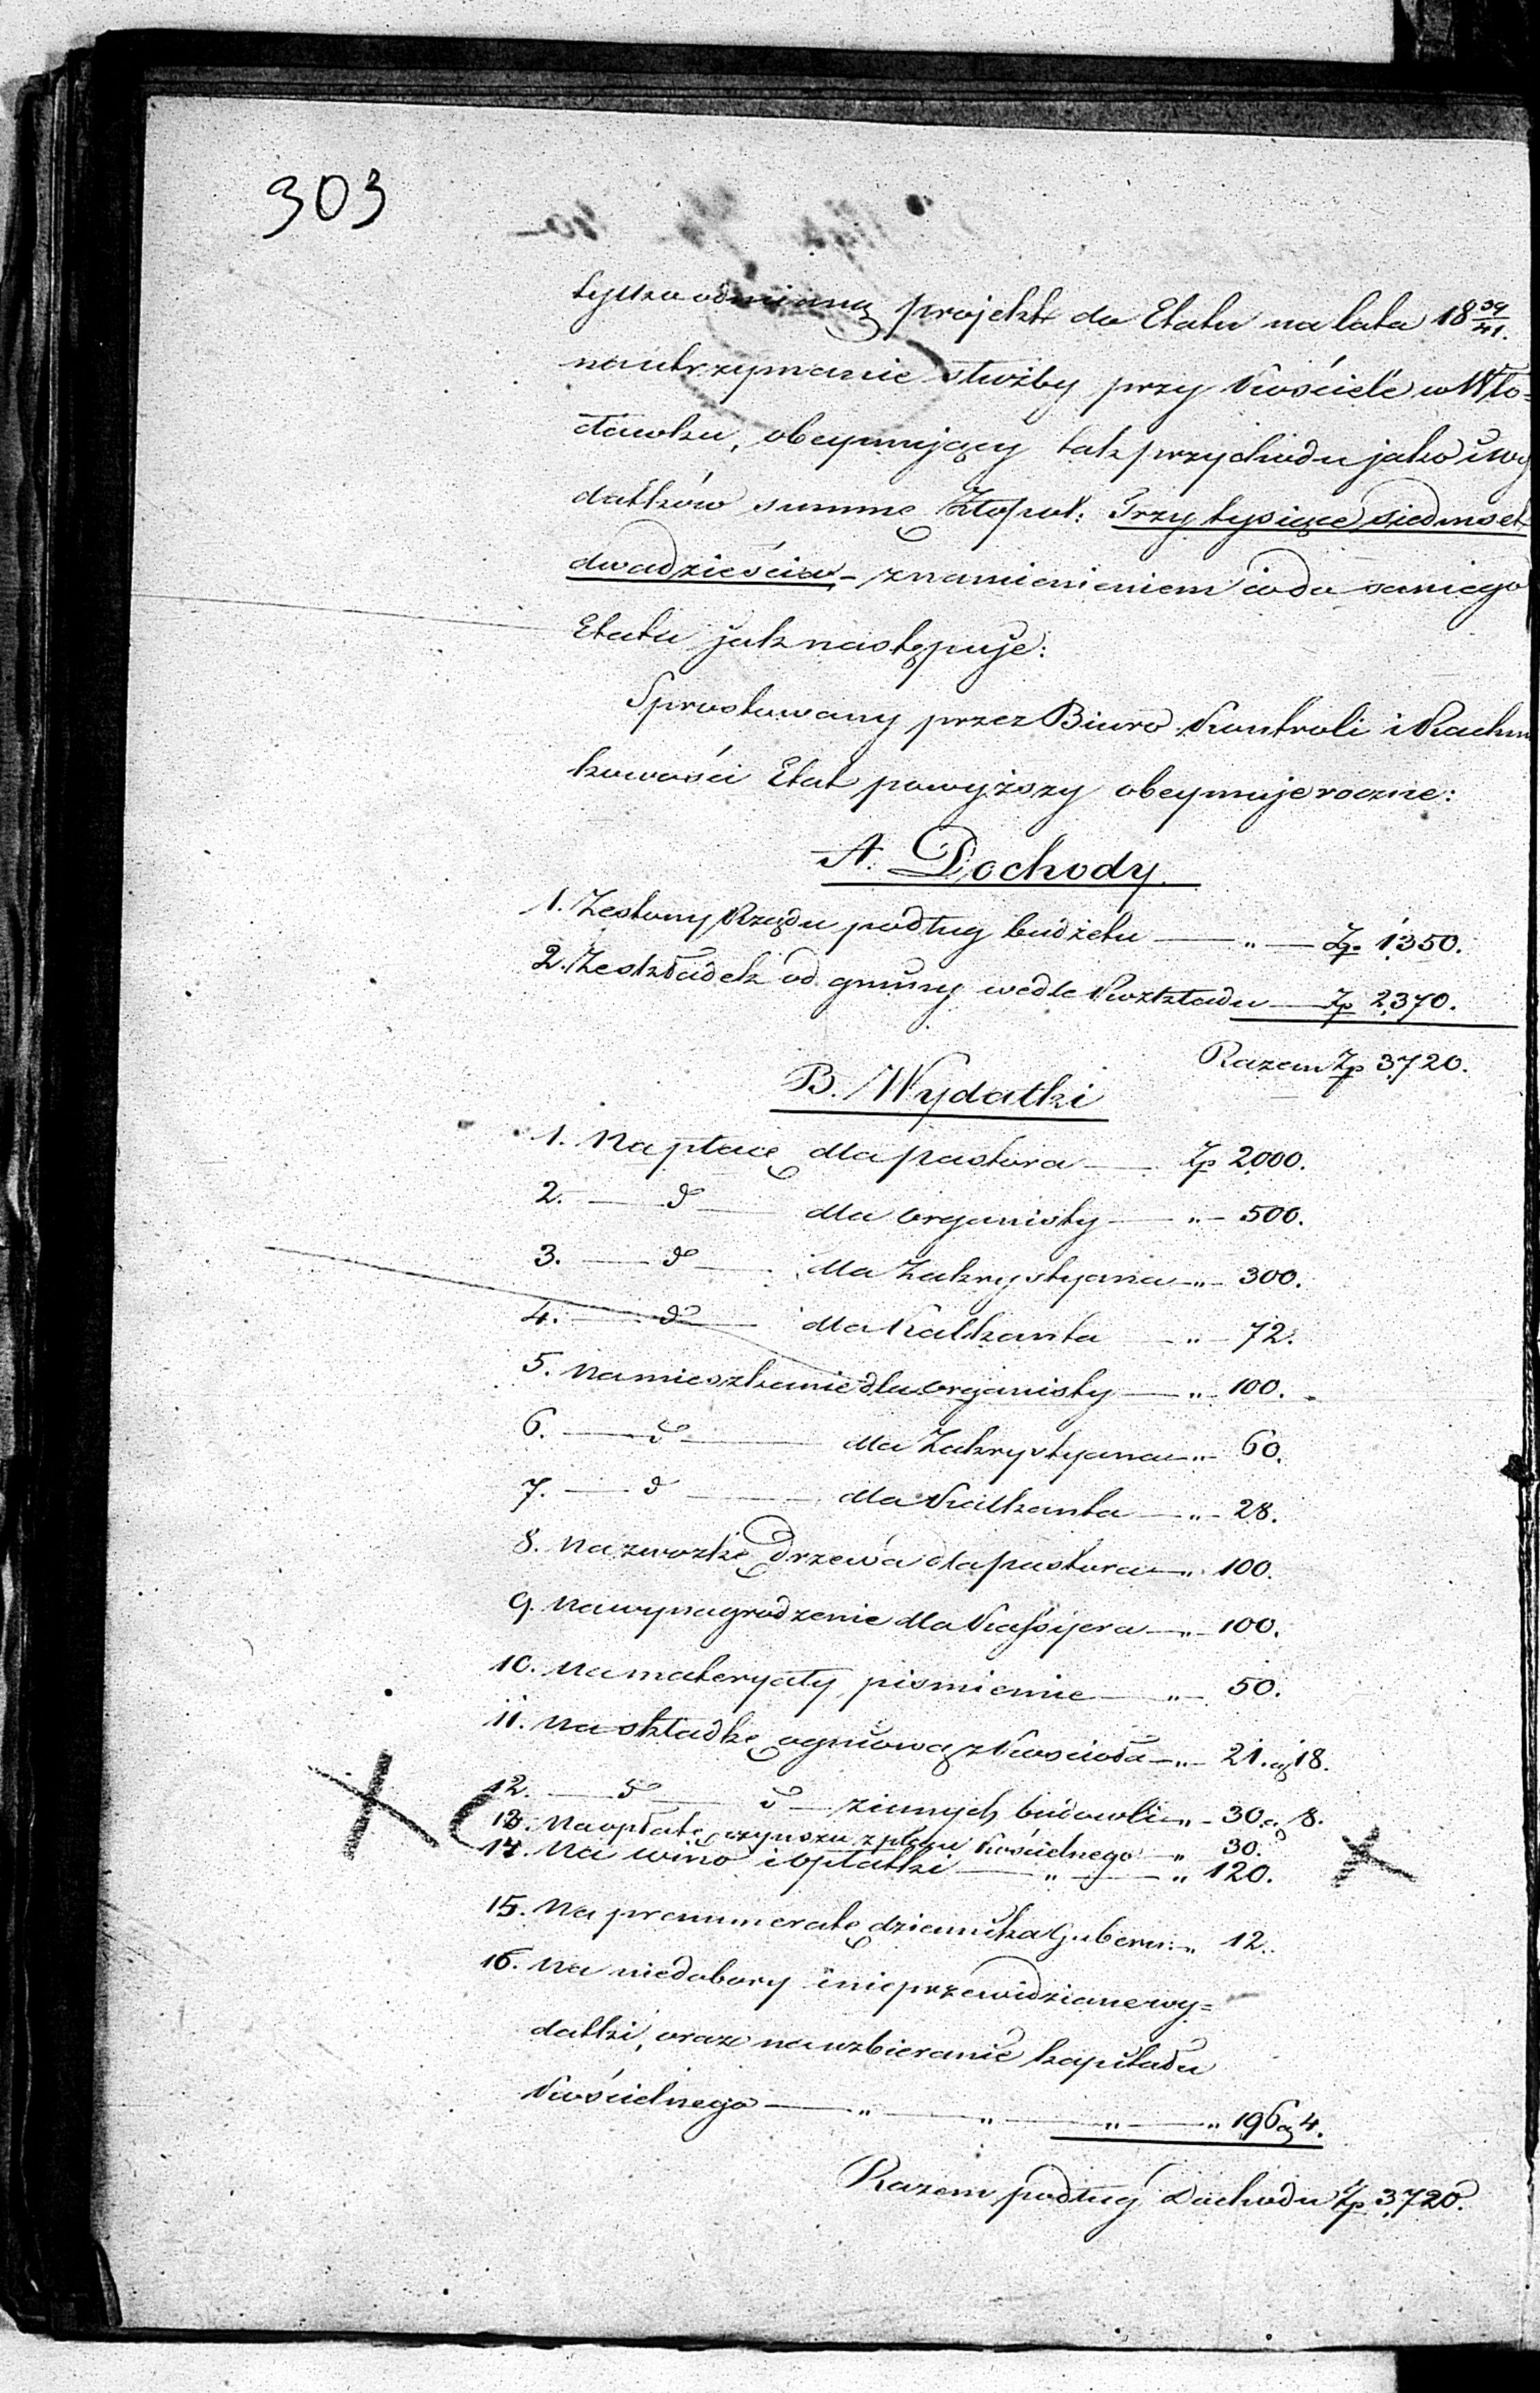 303
tylko odmianą projekt do Etatu na lata 18 39/41.
na utrzymanie służby przy Kościele w Wło=
cławku, obeymujący tak przychodu jako i wy
datków summę Złopol: Trzy tysiące siedmset
dwadzieścia – z namienieniem co do samego
Etatu jak następuje:
Sprostowany przez Biuro Kontroli i Rachun
kowości Etat powyższy obeymuje rocznie:
A. Dochody.
1. Ze strony Rządu podług budżetu — „ — Zp. 1,350.
2. Ze składek od gminy wedle Rozkładu — Zp 2,370.
Razem Zp 3,720.
B. Wydatki
1. Na płacę dla pastora — Zp 2,000.
2. — d° — dla organisty — „ — 500.
3. — d° — dla Zakrystyana — „ — 300.
4. — d° — dla Kalkanta — „ — 72.
5. Na mieszkanie dla organisty — „ — 100.
6. — d° — dla Zakrystyana — „ — 60.
7. — d° — dla Kalkanta — „ — 28.
8. Na zwózkę drzewa dla pastora — „ 100.
9. Na wynagrodzenie dla Kassyera — „ — 100.
10. Na materyały piśmienne — „ — 50.
11. Na składkę ogniową z Kościoła — „ — 21. g 18.
12. — d° — d° — z innych budowli — „ — 30 g 8.
13. Na opłatę czynszu z placu Kościelnego — „ 30.
14. Na wino i opłatki — „ — „ 120.
15. Na prenumeratę dziennika Gubern: „ 12.
16. Na niedobory i nieprzewidziane wy=
datki, oraz na uzbieranie kapitału
Kościelnego — „ — „ — „ — „ 196 g 4.
Razem podług Dochodu Zp 3,720.